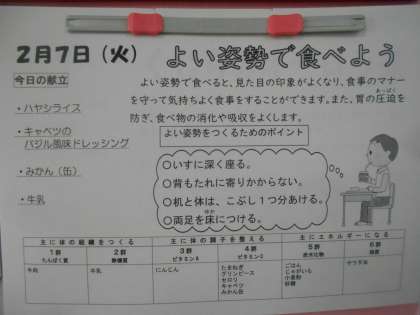 2月7日(火)
よい姿勢で食べよう
今日の献立
・ハヤシライス
・キャベツの
バジル風味ドレッシング
・みかん(缶)
・牛乳
よい姿勢で食べると、見た目の印象がよくなり、食事のマナー
を守って気持ちよく食事をすることができます。また、胃の圧迫を
あっぱく
防ぎ、食べ物の消化や吸収をよくします。
よい姿勢をつくるためのポイント
○いすに深く座る。
○背もたれに寄りかからない。
○机と体は、こぶし1つ分あける。
○両足を床につける。
ゆか
主に体の組織をつくる 主に体の調子を整える 主にエネルギーになる
1群 2群 3群 4群 5群 6群
たんぱく質 無機質 ビタミンA ビタミンC 炭水化物 脂質
牛肉 牛乳 にんじん たまねぎ ごはん
グリンピース じゃがいも
セロリ 小麦粉
キャベツ 砂糖
みかん缶